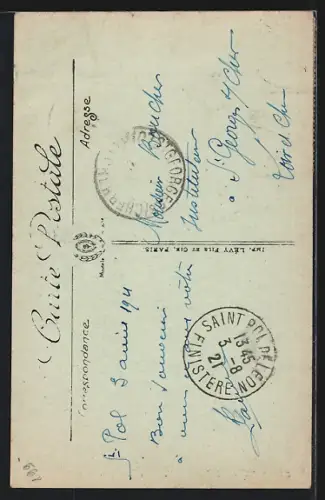 Carte Postale
Correspondance
Adresse
St Pol 3 août 1921
Bon souvenir
à
votre
IMP. LÉVY FILS ET CIE, PARIS
SAINT POL DE LEON
13 45
3 - 8
21
FINISTERE
ST GEORGES
CHER
Monsieur Boucher
Instituteur
à St Georges s/Cher
Loir et Cher